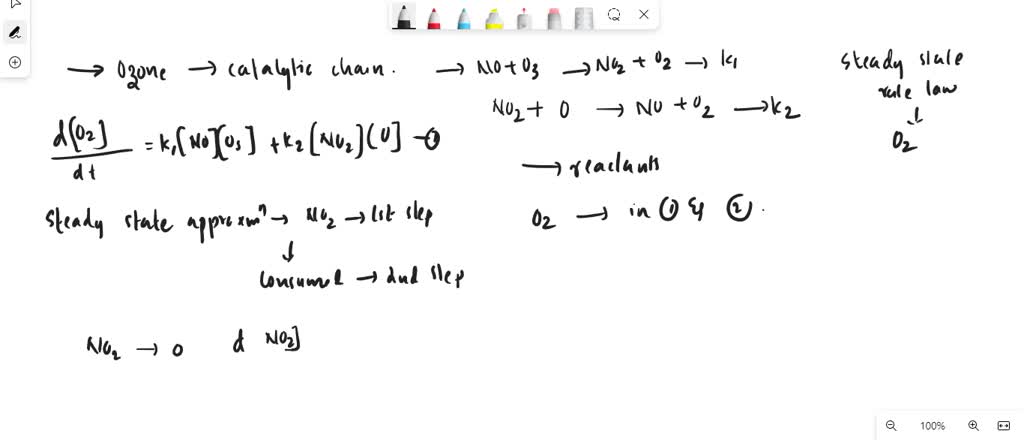 → Ozone → catalytic chain. → NO + O3 → NO2 + O2 → k1
NO2 + O → NO + O2 → k2
steady state
rate law
↓
O2
d[O2]/dt = k1[NO][O3] + k2[NO2][O] - ①
→ reactants
O2 → in ① & ②.
steady state approxmⁿ → NO2 → 1st step
↓
consumed → 2nd step
NO2 → 0 d NO2]
100%